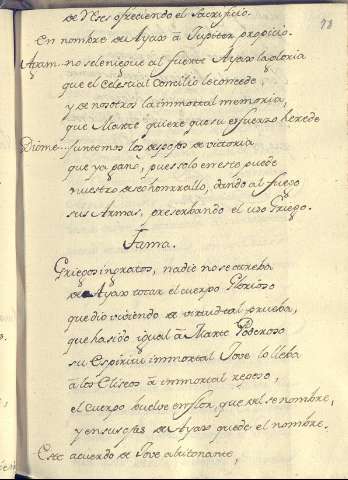 de Dios ofreciendo el sacrificio.
78
En nombre de Ayax â Jupiter propicio.
Agam... no se leniegue al fuerte Ayax la gloria
que el Celestial Concilio le concede,
y de nosotros la immortal memoria,
que Marte quiere que su esfuerzo herede
Diome... juntemos los despojos de victoria
que ya ganò, pues solo en este puede
nuestro deseo honrrallo, dando al fuego
sus Armas, preserbando el uso Griego.
Fama.
Griegos ingratos, nadie no se atreba
de Ayax tocar el cuerpo Glorioso
que dio viviendo de virtud tal prueba,
que ha sido igual â Marte Poderoso
su Espiritu immortal Jove lo lleba
â los Eliseos â immortal reposo,
el cuerpo buelve en flòr, que del se nombre,
y en sus ojas de Ayax quede el nombre.
Este acuerdo de Jove altitonante,